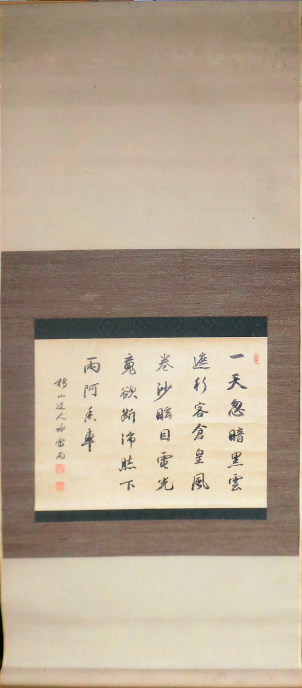 一天忽暗黒雲
遮行客倉皇風
巻沙眩目電光
魂欲断沛然下
雨阿香車
山人詠雷雨